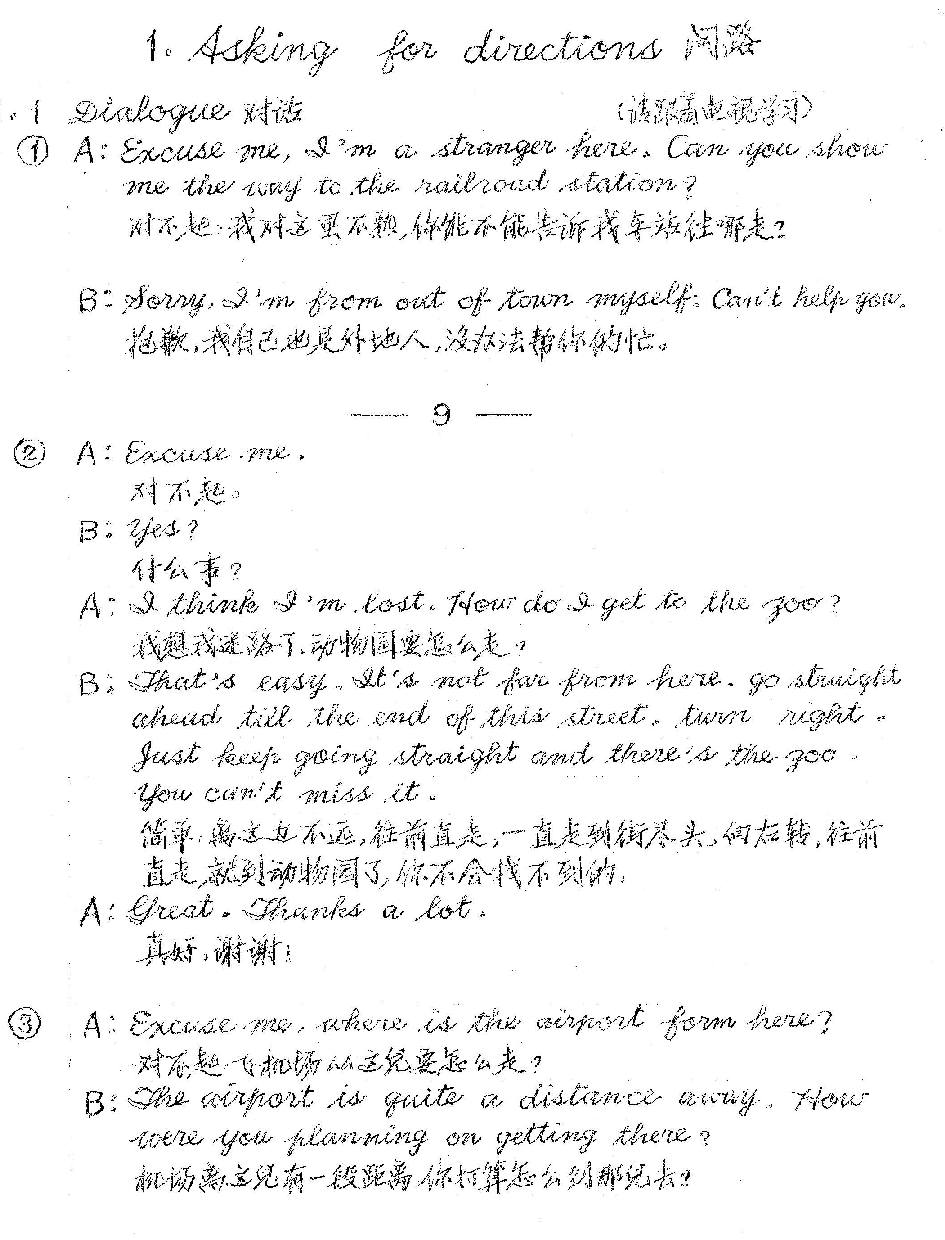 1. Asking for directions 问路
.1 Dialogue 对话 (请跟着电视学习)
① A: Excuse me, I'm a stranger here. Can you show
me the way to the railroad station?
对不起,我对这里不熟,你能不能告诉我车站往哪走?
B: Sorry, I'm from out of town myself. Can't help you.
抱歉,我自己也是外地人,没办法帮你的忙。
— 9 —
② A: Excuse me.
对不起。
B: Yes?
什么事?
A: I think I'm lost. How do I get to the zoo?
我想我迷路了.动物园要怎么走?
B: That's easy. It's not far from here. go straight
ahead till the end of this street. turn right.
Just keep going straight and there's the zoo.
You can't miss it.
简单.离这边不远,往前直走,一直走到街尽头,向右转,往前
直走,就到动物园了,你不会找不到的.
A: Great. Thanks a lot.
真好,谢谢!
③ A: Excuse me, where is the airport form here?
对不起 飞机场从这儿要怎么走?
B: The airport is quite a distance away. How
were you planning on getting there?
机场离这儿有一段距离 你打算怎么到那儿去?